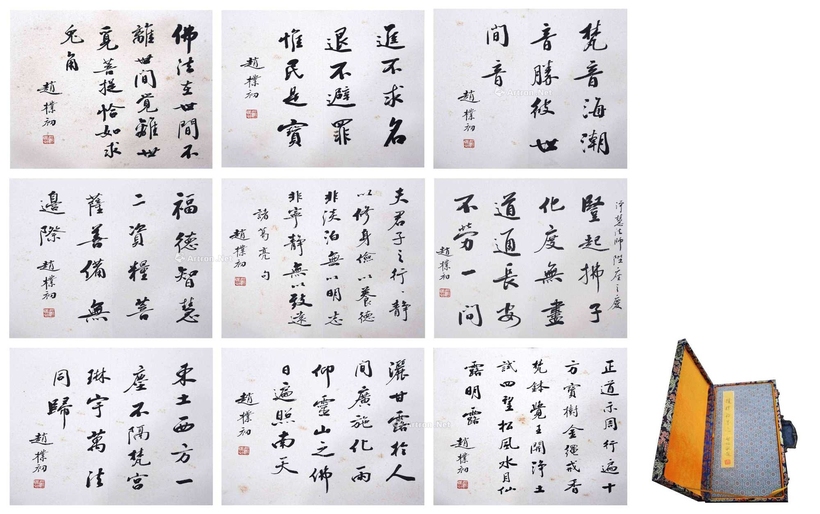 佛法在世間不
離世間覺離世
覓菩提恰如求
兎角
趙樸初
進不求名
退不避罪
惟民是寶
趙樸初
梵音海潮
音勝彼世
間音
趙樸初
福德智慧
二資糧菩
薩善備無
邊際
趙樸初
夫君子之行靜
以修身儉以養德
非淡泊無以明志
非寧靜無以致遠
諸葛亮句
趙樸初
淨慧法師陞座之慶
豎起拂子
化度無盡
道通長安
不勞一問
趙樸初
東土西方一
塵不隔梵宮
琳宇萬法
同歸
趙樸初
灑甘露於人
間廣施化雨
仰靈山之佛
日遍照南天
趙樸初
正道示同行遍十
方寶樹金繩戒香
梵鉢覺王開淨土
試四望松風水月仙
露明
趙樸初